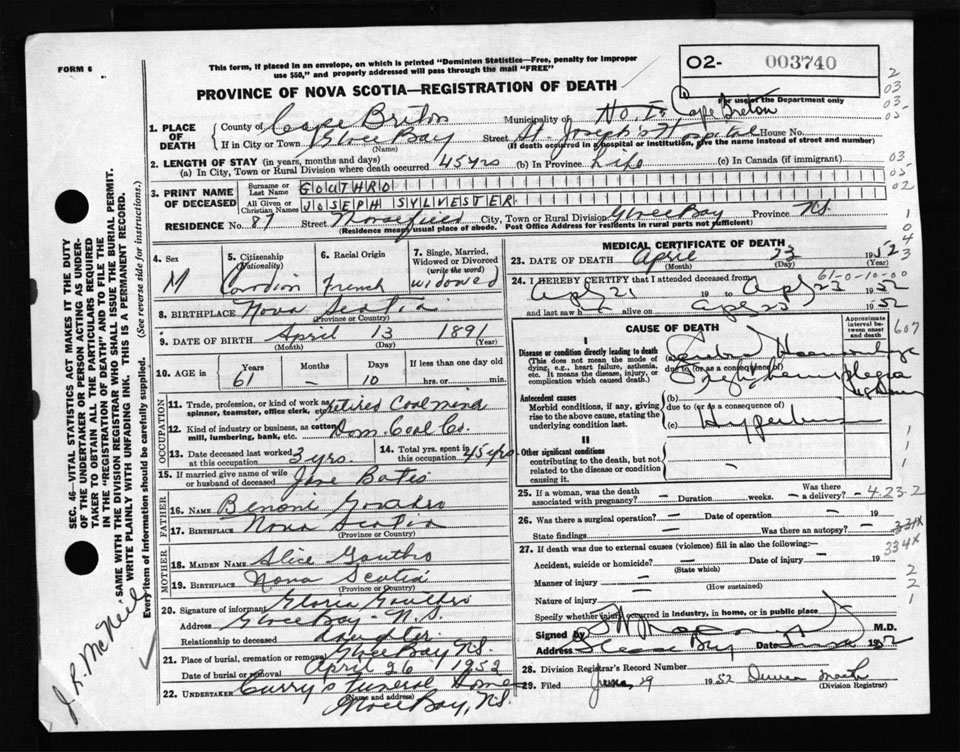 FORM 6
This form, if placed in an envelope, on which is printed "Dominion Statistics—Free, penalty for improper
use $50," and properly addressed will pass through the mail "FREE"
O2- 003740
For use of the Department only
PROVINCE OF NOVA SCOTIA—REGISTRATION OF DEATH
1. PLACE OF DEATH
County of Cape Breton Municipality of Cape Breton
If in City or Town Glace Bay (Name) Street St. Joseph's Hospital House No.
(If death occurred in a hospital or institution, give the name instead of street and number)
2. LENGTH OF STAY (in years, months and days)
(a) In City, Town or Rural Division where death occurred 45 yrs (b) In Province Life (c) In Canada (if immigrant)
3. PRINT NAME OF DECEASED
Surname or Last Name GOUTHRO
All Given or Christian Names JOSEPH SYLVESTER
RESIDENCE No. 87 Street City, Town or Rural Division Glace Bay Province N.S.
(Residence means usual place of abode. Post Office Address for residents in rural parts not sufficient)
4. Sex M
5. Citizenship (Nationality) Canadian
6. Racial Origin French
7. Single, Married, Widowed or Divorced (write the word) Widowed
8. BIRTHPLACE Nova Scotia
(Province or Country)
9. DATE OF BIRTH April 3 1891
(Month) (Day) (Year)
10. AGE in Years 61 Months — Days 10 If less than one day old hrs. or min.
OCCUPATION
11. Trade, profession, or kind of work as spinner, teamster, office clerk, etc. Retired Coal
12. Kind of industry or business, as cotton mill, lumbering, bank, etc. Dom. Coal Co.
13. Date deceased last worked at this occupation 3 yrs.
14. Total yrs. spent in this occupation 45 yrs
15. If married give name of wife or husband of deceased
FATHER
16. NAME Benoni Gouthro
17. BIRTHPLACE Nova Scotia
(Province or Country)
MOTHER
18. MAIDEN NAME Alice Gouthro
19. BIRTHPLACE Nova Scotia
(Province or Country)
20. Signature of informant Gloria Gouthro
Address Glace Bay - N.S.
Relationship to deceased daughter
21. Place of burial, cremation or removal Glace Bay N.S.
Date of burial or removal April 26 1952
22. UNDERTAKER Curry's Funeral Home
(Name and address)
Glace Bay, N.S.
MEDICAL CERTIFICATE OF DEATH
23. DATE OF DEATH April 23 1952
(Month) (Day) (Year)
61-0-10-00
24. I HEREBY CERTIFY that I attended deceased from
Apl 21 19 to Apl 23 1952
and last saw h alive on Apl 23 1952
CAUSE OF DEATH
Approximate interval between onset and death
607
I
Disease or condition directly leading to death
(This does not mean the mode of dying, e.g., heart failure, asthenia, etc. It means the disease, injury, or complication which caused death.)
(a) Hemorrhage
due to (or as a consequence of)
hemiplegia
Antecedent causes
Morbid conditions, if any, giving rise to the above cause, stating the underlying condition last.
(b)
due to (or as a consequence of)
(c)
II
Other significant conditions
contributing to the death, but not related to the disease or condition causing it.
25. If a woman, was the death associated with pregnancy? — Duration weeks. — Was there a delivery? — 4-23-2
26. Was there a surgical operation? — Date of operation — 19
State findings — Was there an autopsy? — 331X
27. If death was due to external causes (violence) fill in also the following:— 334X
Accident, suicide or homicide? — Date of injury — 19
(State which)
Manner of injury —
(How sustained)
Nature of injury —
Specify whether injury occurred in industry, in home, or in public place
Signed by M.D.
Address Glace Bay Date 1952
28. Division Registrar's Record Number
29. Filed June 29 1952
(Division Registrar)
SEC. 46—VITAL STATISTICS ACT MAKES IT THE DUTY
OF THE UNDERTAKER OR PERSON ACTING AS UNDER-
TAKER TO OBTAIN ALL THE PARTICULARS REQUIRED
IN THE "REGISTRATION OF DEATH" AND TO FILE THE
SAME WITH THE DIVISION REGISTRAR WHO SHALL ISSUE THE BURIAL PERMIT.
WRITE PLAINLY WITH UNFADING INK. THIS IS A PERMANENT RECORD.
Every item of information should be carefully supplied. (See reverse side for instructions.)
J. R. McNeil